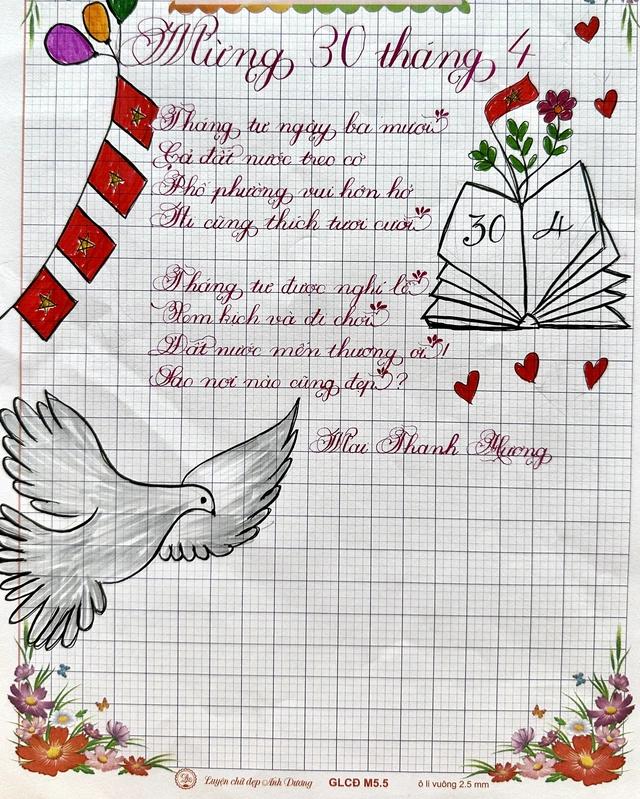 Mừng 30 tháng 4
Tháng tư ngày ba mươi
Cả đất nước treo cờ
Phố phường vui hớn hở
Ai cũng thích tươi cười
30 4
Tháng tư được nghỉ lễ
Xem kịch và đi chơi
Đất nước mến thương ơi!
Sao nơi nào cũng đẹp?
Mai Thanh Hương
Luyện chữ đẹp Ánh Dương GLCĐ M5.5 ô li vuông 2.5 mm